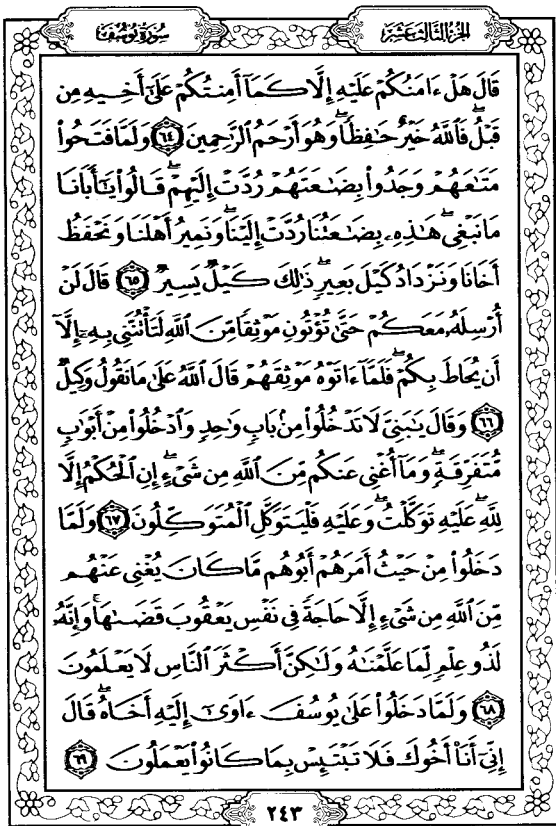 سُورَةُ يُوسُفَ
الجُزْءُ الثَّالِثَ عَشَرَ
قَالَ هَلْ ءَامَنُكُمْ عَلَيْهِ إِلَّا كَمَآ أَمِنتُكُمْ عَلَىٰٓ أَخِيهِ مِن
قَبْلُ ۖ فَٱللَّهُ خَيْرٌ حَٰفِظًا ۖ وَهُوَ أَرْحَمُ ٱلرَّٰحِمِينَ ٦٤ وَلَمَّا فَتَحُوا۟
مَتَٰعَهُمْ وَجَدُوا۟ بِضَٰعَتَهُمْ رُدَّتْ إِلَيْهِمْ ۖ قَالُوا۟ يَٰٓأَبَانَا
مَا نَبْغِى ۖ هَٰذِهِۦ بِضَٰعَتُنَا رُدَّتْ إِلَيْنَا ۖ وَنَمِيرُ أَهْلَنَا وَنَحْفَظُ
أَخَانَا وَنَزْدَادُ كَيْلَ بَعِيرٍ ۖ ذَٰلِكَ كَيْلٌ يَسِيرٌ ٦٥ قَالَ لَنْ
أُرْسِلَهُۥ مَعَكُمْ حَتَّىٰ تُؤْتُونِ مَوْثِقًا مِّنَ ٱللَّهِ لَتَأْتُنَّنِى بِهِۦٓ إِلَّآ
أَن يُحَاطَ بِكُمْ ۖ فَلَمَّآ ءَاتَوْهُ مَوْثِقَهُمْ قَالَ ٱللَّهُ عَلَىٰ مَا نَقُولُ وَكِيلٌ
٦٦ وَقَالَ يَٰبَنِىَّ لَا تَدْخُلُوا۟ مِنۢ بَابٍ وَٰحِدٍ وَٱدْخُلُوا۟ مِنْ أَبْوَٰبٍ
مُّتَفَرِّقَةٍ ۖ وَمَآ أُغْنِى عَنكُم مِّنَ ٱللَّهِ مِن شَىْءٍ ۖ إِنِ ٱلْحُكْمُ إِلَّا
لِلَّهِ ۖ عَلَيْهِ تَوَكَّلْتُ ۖ وَعَلَيْهِ فَلْيَتَوَكَّلِ ٱلْمُتَوَكِّلُونَ ٦٧ وَلَمَّا
دَخَلُوا۟ مِنْ حَيْثُ أَمَرَهُمْ أَبُوهُم مَّا كَانَ يُغْنِى عَنْهُم
مِّنَ ٱللَّهِ مِن شَىْءٍ إِلَّا حَاجَةً فِى نَفْسِ يَعْقُوبَ قَضَىٰهَا ۚ وَإِنَّهُۥ
لَذُو عِلْمٍ لِّمَا عَلَّمْنَٰهُ وَلَٰكِنَّ أَكْثَرَ ٱلنَّاسِ لَا يَعْلَمُونَ
٦٨ وَلَمَّا دَخَلُوا۟ عَلَىٰ يُوسُفَ ءَاوَىٰٓ إِلَيْهِ أَخَاهُ ۖ قَالَ
إِنِّىٓ أَنَا۠ أَخُوكَ فَلَا تَبْتَئِسْ بِمَا كَانُوا۟ يَعْمَلُونَ ٦٩
٢٤٣